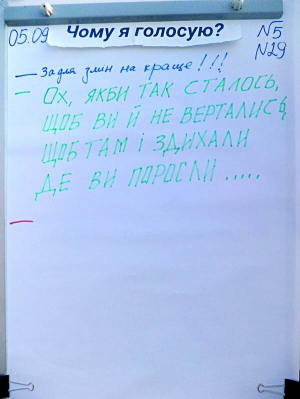 05.09 Чому я голосую? №5
№29
— Задля змін на краще!!!
— Ох, якби так сталось,
щоб ви й не вертались,
щоб там і здихали
де ви поросли.....